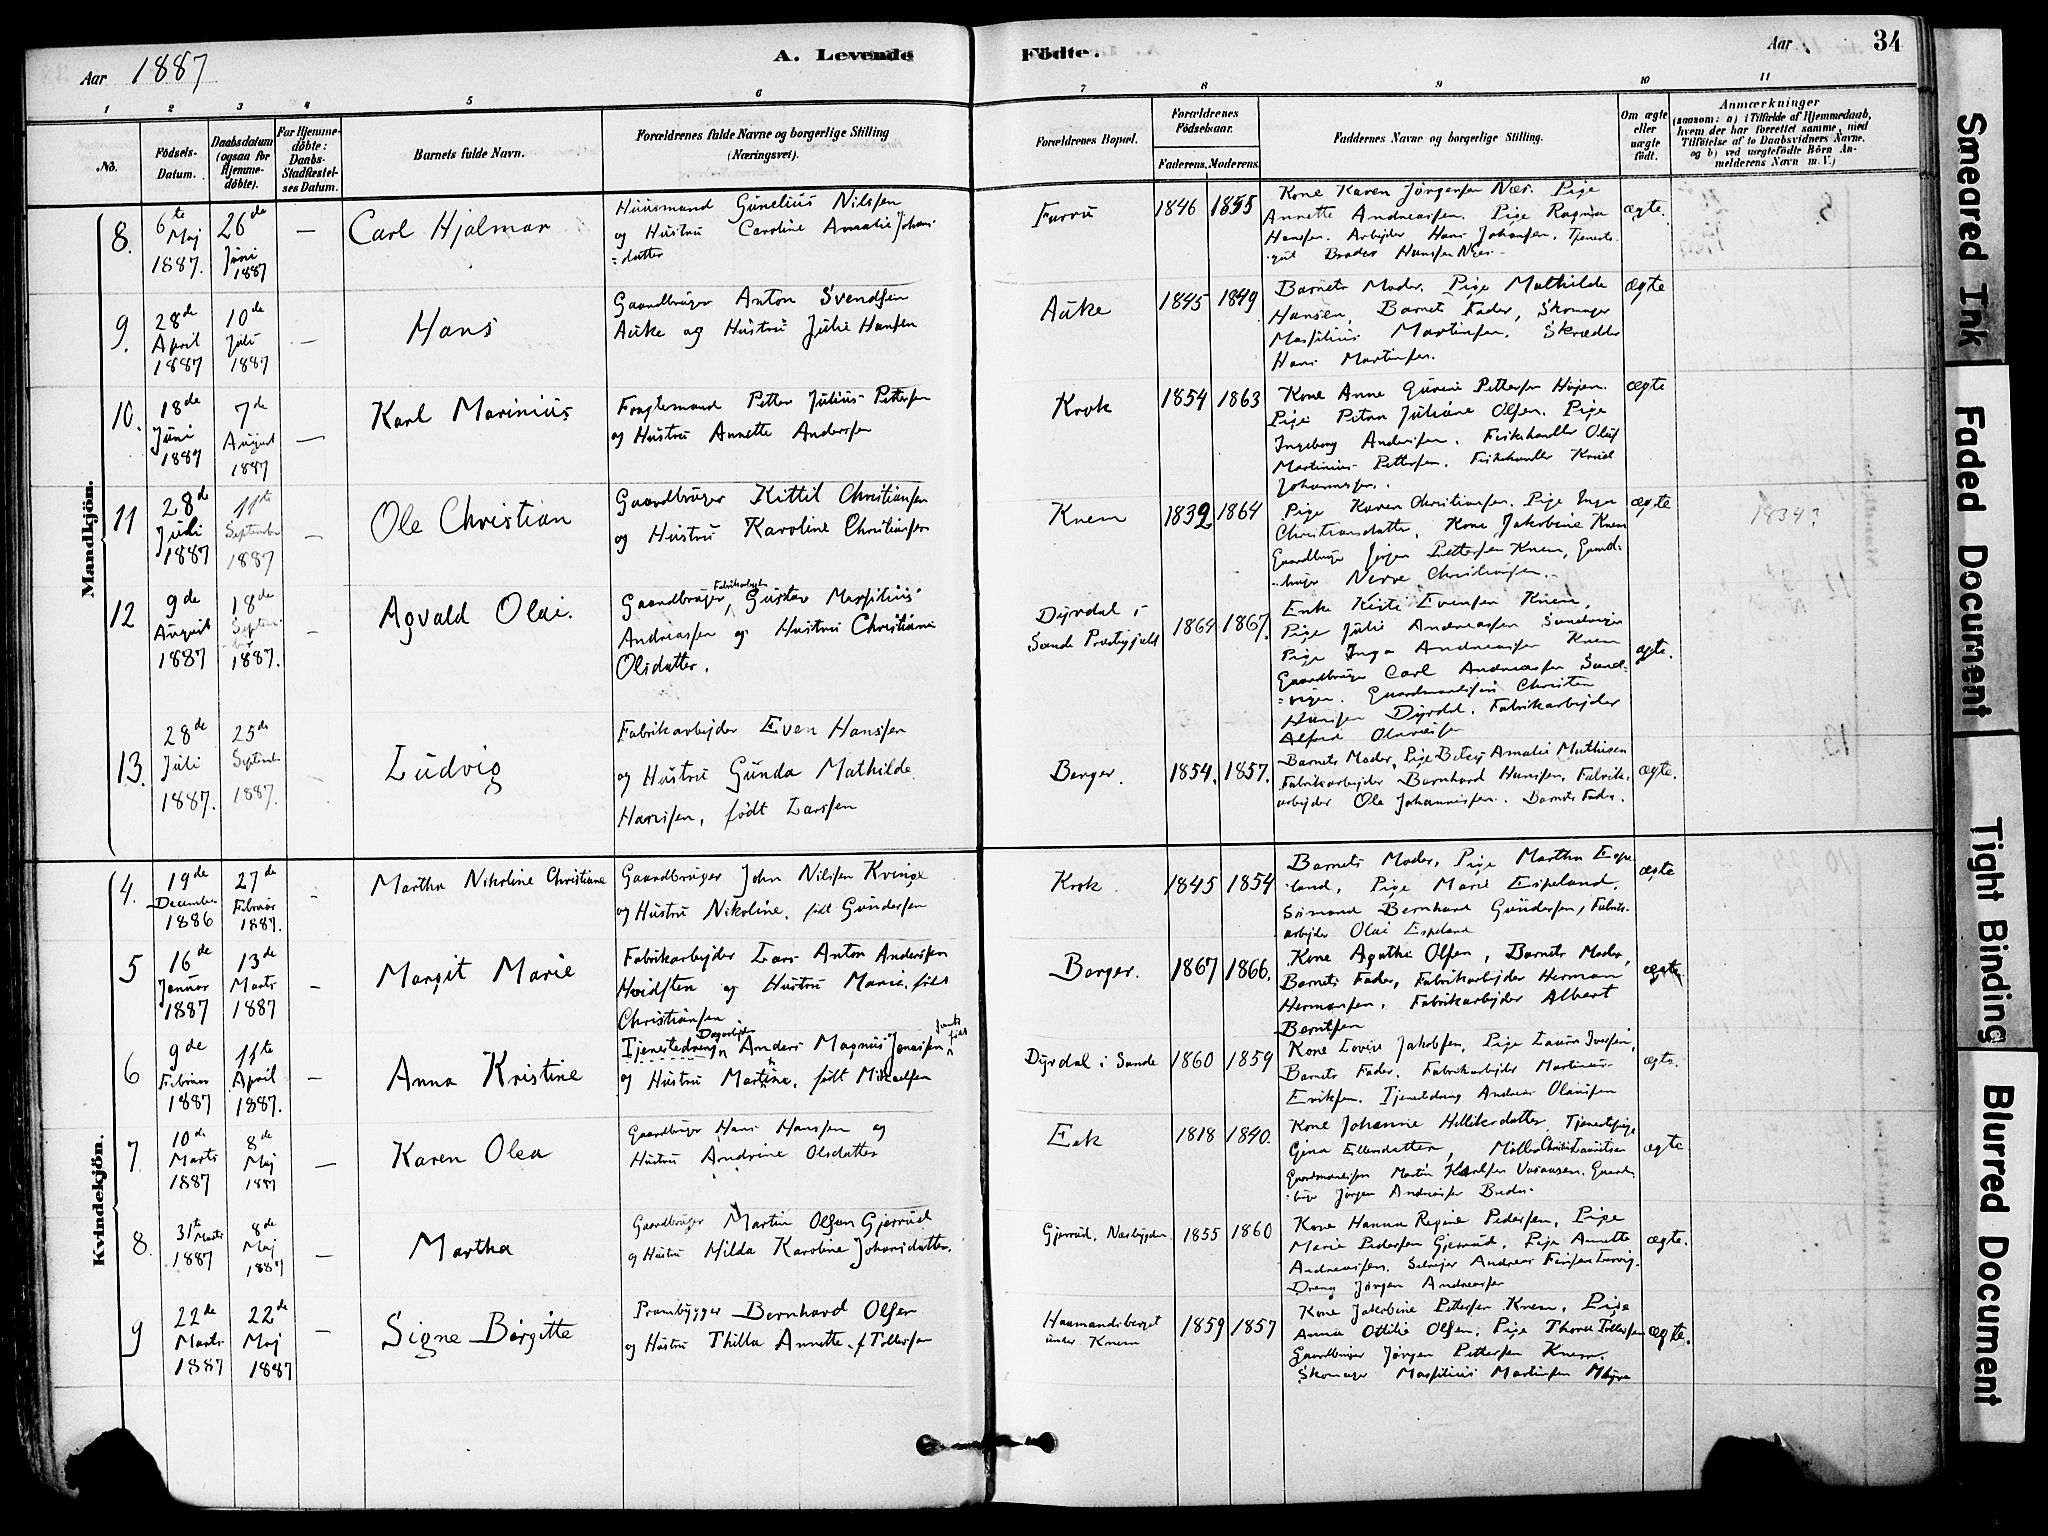 Aar 1887
A. Levende Födte.
Aar
34
1 2 3 4 5 6 7 8 9 10 11
No.
Födsels-Datum.
Daabsdatum (ogsaa for Hjemme-döbte).
For Hjemme-döbte: Daabs-Stadfæstel-ses Datum.
Barnets fulde Navn.
Forældrenes fulde Navne og borgerlige Stilling (Næringsvei).
Forældrenes Bopæl.
Forældrenes Födselsaar.
Faderens. Moderens.
Faddernes Navne og borgerlige Stilling.
Om ægte eller uægte födt.
Anmærkninger
(saasom: a) i Tilfælde af Hjemmedaab, hvem der har forrettet samme, med Tilföielse af to Daabsvidners Navne. og b) ved uægtefödte Börn Anmelderens Navn m. V.)
Mandkjön.
8. 6te Maj 1887. 26de Juni 1887 — Carl Hjalmar
Huusmand Gunelius Nilssen
og Hustru Caroline Amalie Johans
=datter
Furru 1846 1855
Kone Karen Jørgensen Næs. Pige
Annette Andreassen. Pige Ragna
Hansen. Arbejder Hans Johansen. Tjeneste-
gut Brader Hansen Næs.
ægte.
9. 28de April 1887 10de Juli 1887 — Hans
Gaardbruger Anton Svendsen
Auke og Hustru Julie Hansen
Auke 1845 1849
Barnets Moder, Pige Mathilde
Hansen, Barnets Fader, Skomager
Massilius Martinsen. Skrædder
Hans Martinsen.
ægte
10. 18de Juni 1887 7de August 1887 — Karl Marinius
Fragtemand Petter Julius Pettersen
og Hustru Annette Andersen
Krok 1854 1863
Kone Anne Gurine Pettersen Højen.
Pige Petra Juliane Olsen. Pige
Ingeborg Andersen. Fiskehandler Oluf
Martinius Pettersen. Fiskehandler Knud
Johannessen.
ægte
11 28de Juli 1887 11te September 1887 — Ole Christian
Gaardbruger Kittil Christiansen
og Hustru Karoline Christiansen
Knem 1832 1864
Pige Karen Christiansen. Pige Inga
Christiansdatter, Kone Jakobine Knem
Gaardbruger Jørgen Pettersen Knem, Gaard-
-bruger Nerve Christiansen.
ægte
1834?
12 9de August 1887 18de September 1887. — Agvald Olai.
Fabrikarbejder
Gaardbruger Gustav Massilius
Andreassen og Hustru Christiane
Olsdatter.
Dyrdal i
Sande Præstegjeld 1864 1867.
Enke Kisti Evensen Knem,
Pige Julie Andreassen Sandvigen
Pige Inga Andreassen Knem
Gaardbruger Carl Andreassen Sand=
=vigen. Gaardmandssøn Christen
Hansen Dyrdal. Fabrikarbejder
Alfred Olavessen
ægte.
13. 28de Juli 1887. 25de September 1887. Ludvig
Fabrikarbejder Even Hanssen
og Hustru Gunda Mathilde
Hanssen, født Larssen
Berger. 1854. 1857.
Barnets Moder, Pige Betsy Amalie Mathisen
Fabrikarbejder Bernhard Hansen. Fabrik-
arbejder Ole Johannessen. Barnets Fader.
ægte.
Kvindekjön.
4. 19de December 1886 27de Februar 1887. - Martha Nikoline Christiane
Gaardbruger John Nilssen Kvinge
og Hustru Nikoline, født Gundersen
Krok. 1845 1854
Barnets Moder, Pige Martha Espe
land, Pige Marie Espeland.
Sømand Bernhard Gundersen, Fabrik-
arbejder Olai Espeland
ægte
5 16de Januar 1887 13de Marts 1887 — Margit Marie
Fabrikarbejder Lars Anton Anderssen
Hvidsten og Hustru Maria, født
Christiansen
Berger. 1867 1866.
Kone Agathe Olsen, Barnets Moder,
Barnets Fader, Fabrikarbejder Herman
Hermansen, Fabrikarbejder Albert
Berntsen
ægte
6 9de Februar 1887 11te April 1887. — Anna Kristine
Dagarbejder
Tjenestedreng Anders Magnus Jonassen
og Hustru Martine, født Mikaelsen
Dyrdal i Sande 1860 1859
Kone Lovise Jakobsen, Pige Laura Iversen,
Barnets Fader. Fabrikarbejder Martinus
Eriksen. Tjenestdreng Andreas Olaussen
ægte.
7. 10de Marts 1887 8de Maj 1887 — Karen Olea
Gaardbruger Hans Hanssen og
Hustru Andrine Olsdatter
Eek 1818 1840.
Kone Johanne Helliksdatter, Tjenestepige
Gina Ellensdatter, Møller Christen Lauritsen
Gaardmandssøn Martin Karlsen Vasaasen. Gaard-
bruger Jørgen Andreassen Bredes.
ægte
8. 31te Marts 1887 8de Maj 1887 — Martha
Gaardbruger Martin Olsen Gjerrud
og Hustru Hilda Karoline Johansdatter.
Gjerrud, Næsbygden 1855 1860
Kone Hanna Regine Pedersen, Pige
Marie Pedersen Gjerrud. Pige Annette
Andreassen. Selvejer Andreas
Dreng Jørgen Andreassen
ægte.
9 22de Marts 1887 22de Maj 1887 — Signe Børgitte
Prambygger Bernhard Olsen
og Hustru Thilla Annette f Tollefsen
Haamandsberget
under Knem 1859 1857
Kone Jakobine Pettersen Knem, Pige
Anna Ottilie Olsen. Pige Thora Tollefsen
Gaardbruger Jørgen Pettersen Knem.
Skomager Massilius Martinsen Myra
ægte.
Smeared Ink
Faded Document
Tight Binding
Blurred Document